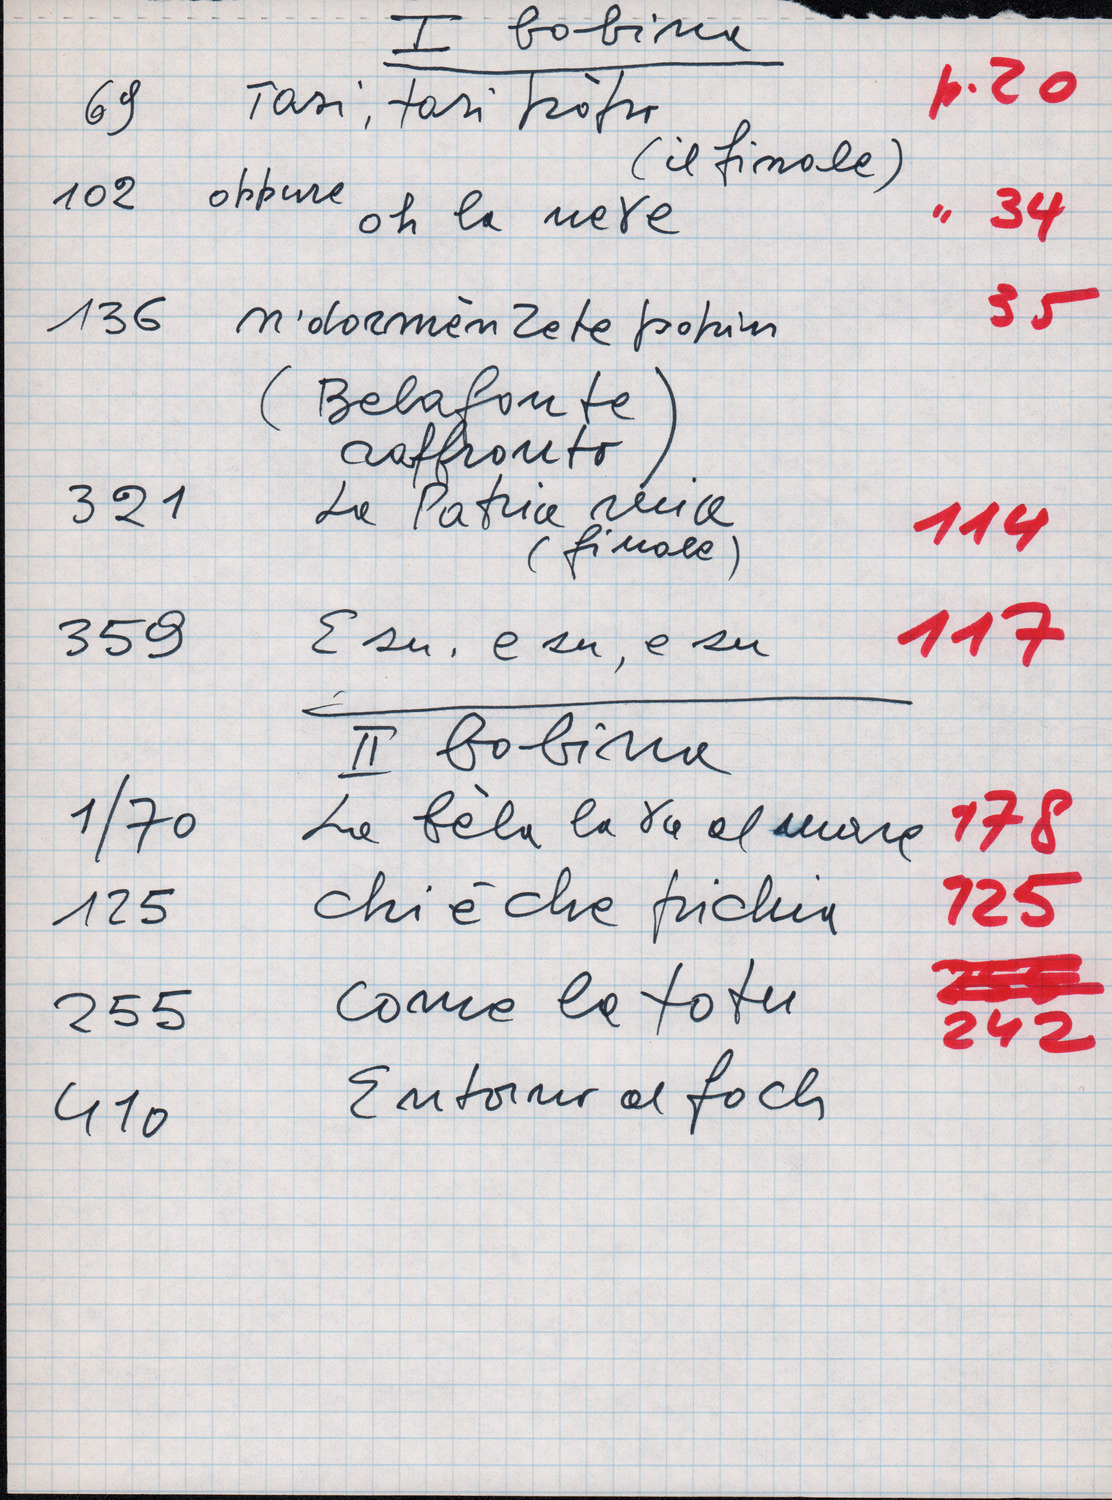 I bobina
69 Tasi, tasi pòpo p. 20
(il finale)
102 oppure oh la neve " 34
136 n'dormènzete popin 35
(Belafonte
raffronto)
321 La Patria mia 114
(finale)
359 E su. e su, e su 117
II bobina
1/70 La bèla la va al mare 178
125 chi è che pichia 125
255 Come la 242
410 Entorno al foch